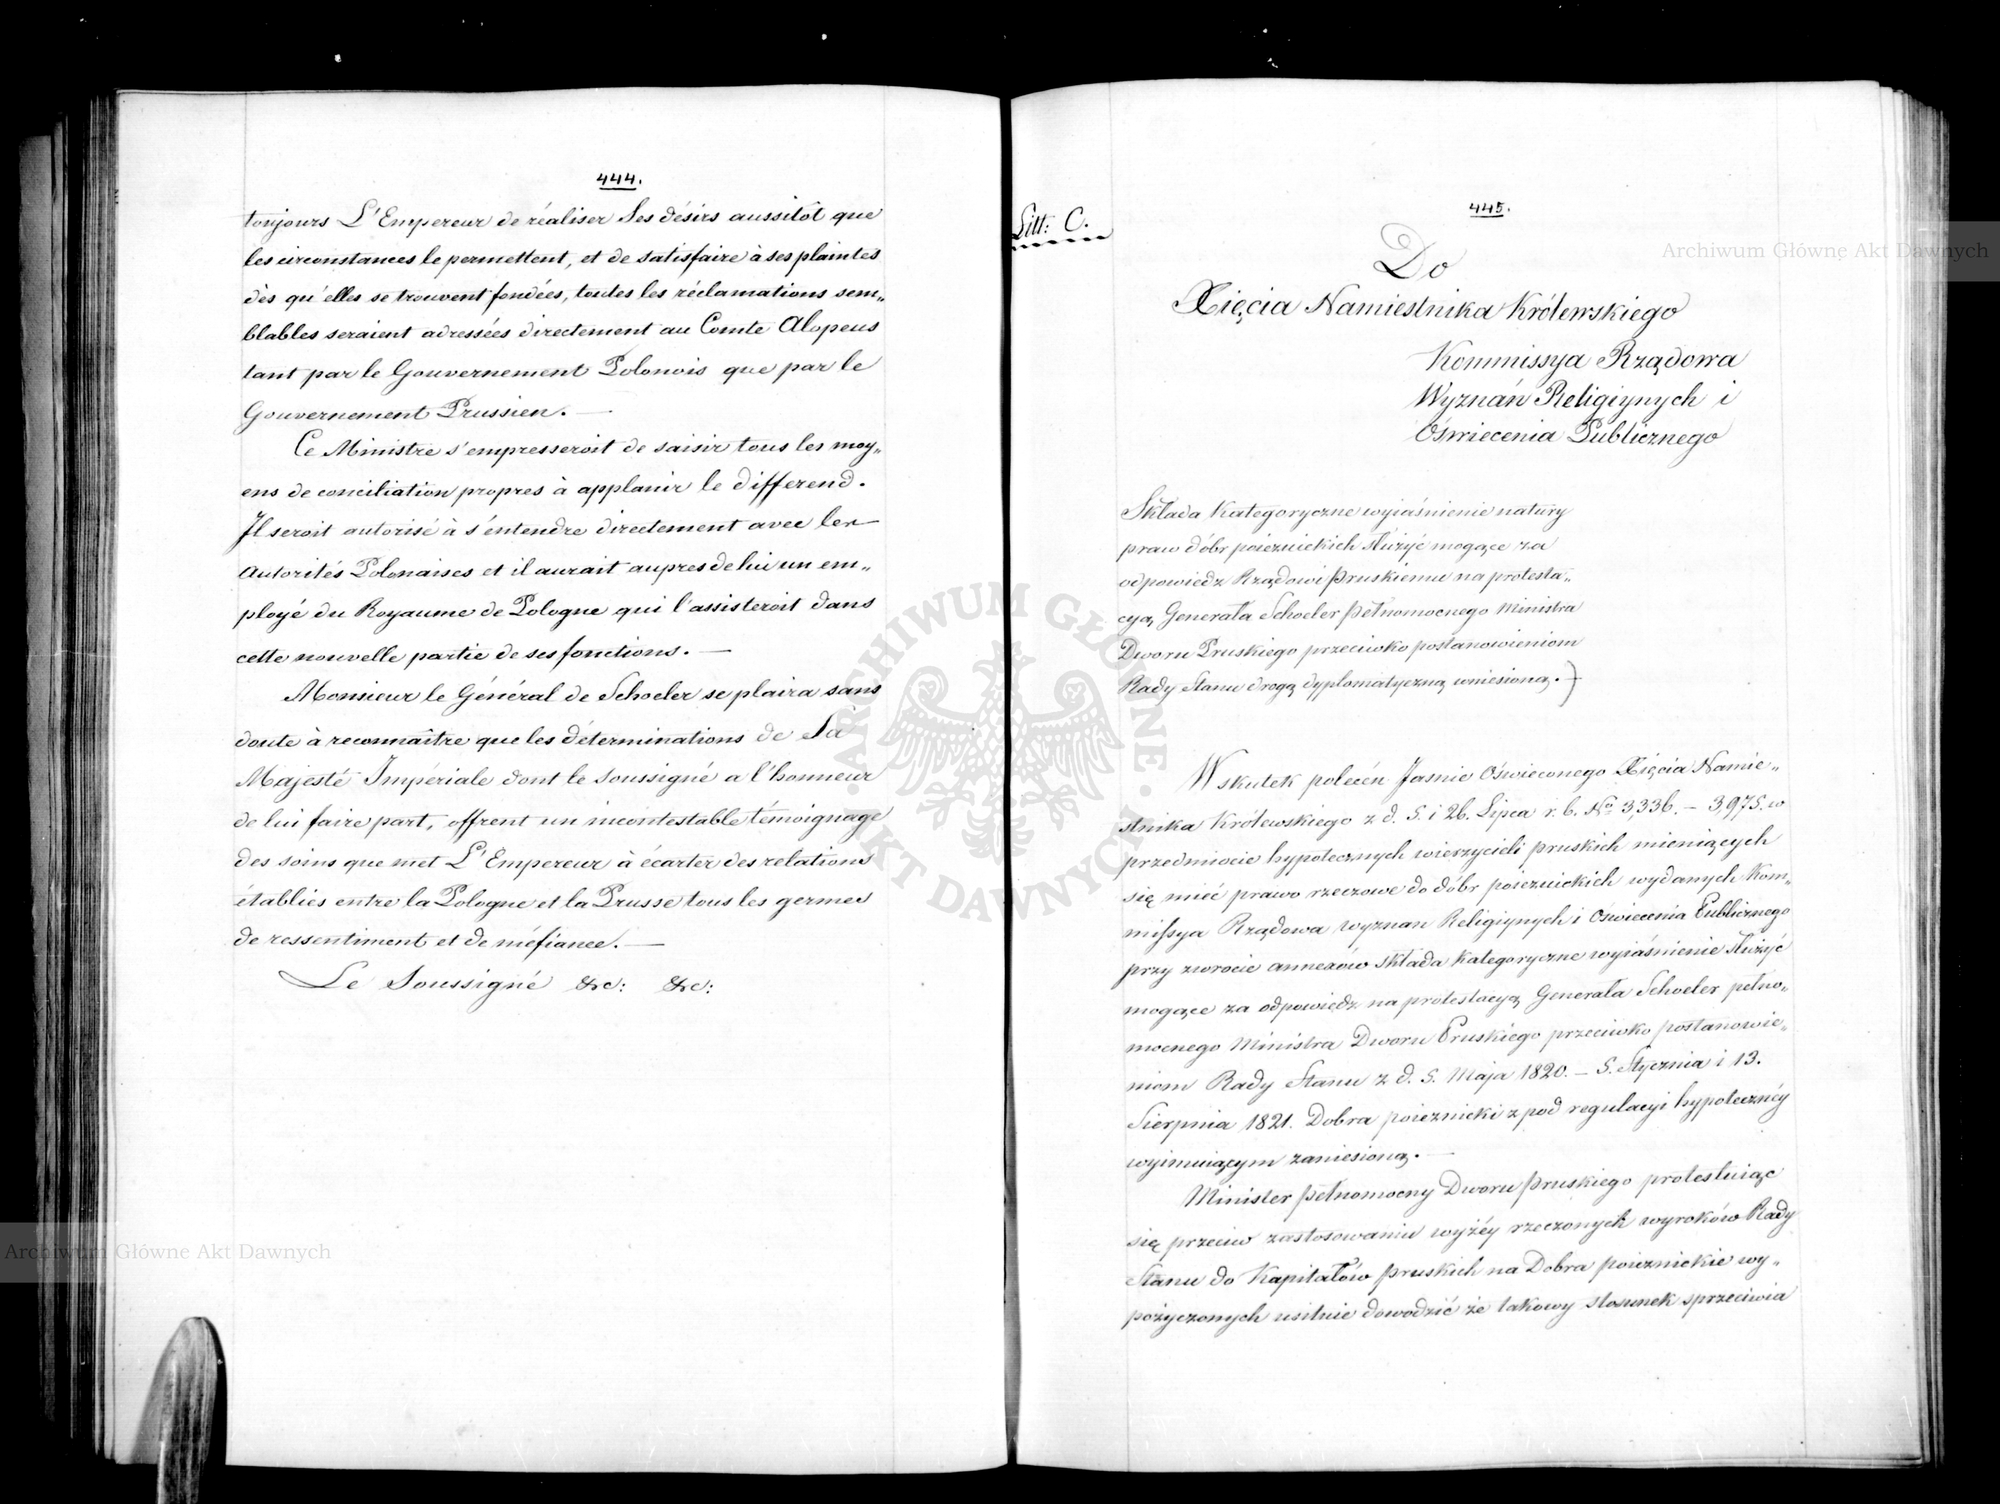 444.
toujours L'Empereur de réaliser Ses désirs aussitôt que
les circonstances le permettent, et de satisfaire à ses plaintes
dès qu'elles se trouvent fondées, toutes les réclamations sem„
blables seraient adressées directement au Comte Alopeus
tant par le Gouvernement Polonois que par le
Gouvernement Prussien. —
Ce Ministre s'empresseroit de saisir tous les moy„
ens de conciliation propres à applanir le différend.
Il seroit autorisé à s'entendre directement avec les
Autorités Polonaises et il aurait aupres de lui un em„
ployé du Royaume de Pologne qui l'assisteroit dans
cette nouvelle partie de ses fonctions. —
Monsieur le Général de Schoeler se plaira sans
doute à reconnaître que les déterminations de Sa
Majesté Impériale dont le soussigné a l'honneur
de lui faire part, offrent un incontestable témoignage
des soins que met L'Empereur à écarter des relations
établies entre la Pologne et la Prusse tous les germes
de ressentiment et de méfiance. —
Le Soussigné &c: &c:
Litt: C.
445.
Do
Xięcia Namiestnika Królewskiego
Kommissya Rządowa
Wyznań Religiynych i
Oświecenia Publicznego
Składa Kategoryczne wyiaśnienie natury
praw dóbr poieznickich służyć mogące za
odpowiedz Rządowi Pruskiemu na protesta„
cyą Generała Schoeler Pełnomocnego Ministra
Dworu Pruskiego przeciwko postanowieniom
Rady Stanu drogą dyplomatyczną wniesioną. —
W skutek poleceń Jaśnie Oświeconego Xięcia Namie„
stnika Królewskiego z d. 5. i 26. Lipca r. b. No 3,336. — 3,975. w
przedmiocie hypotecznych wierzycieli pruskich mieniących
się mieć prawo rzeczowe do dóbr poieznickich wydanych Kom„
missya Rządowa wyznań Religiynych i Oświecenia Publicznego
przy zwrocie annexów składa kategoryczne wyiaśnienie służyć
mogące za odpowiedz na protestacyą Generała Schoeler pełno„
mocnego Ministra Dworu Pruskiego przeciwko postanowie„
niom Rady Stanu z d. 5. Maja 1820. — 5. Stycznia i 13.
Sierpnia 1821. Dobra poieznicki z pod regulacyi hypotecznéy
wyimuiącym zaniesioną. —
Minister pełnomocny Dworu Pruskiego protestuiąc
się przeciw zastosowaniu wyżéy rzeczonych wyroków Rady
Stanu do Kapitałów pruskich na Dobra poieznickie wy„
pożyczonych usiłuie dowodzić że takowy stosunek sprzeciwia
Archiwum Główne Akt Dawnych
Archiwum Główne Akt Dawnych
ARCHIWUM GŁÓWNE · AKT DAWNYCH ·